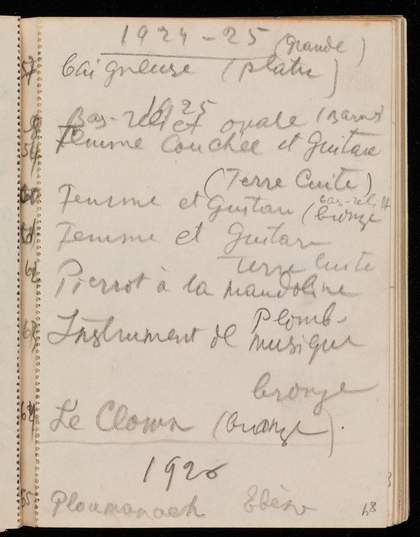 1924-25 (Grande)
Baigneuse (platre)
1925
Bas-relief ovale (Barnes
Femme Couchee et Guitare
(Terre Cuite)
Femme et Guitare (bas-relief
bronze
Femme et Guitare
Terre Cuite
Pierrot à la mandoline
Plomb-
Instrument de musique
bronze
Le Clown (bronze).
1926
Ploumanach
68